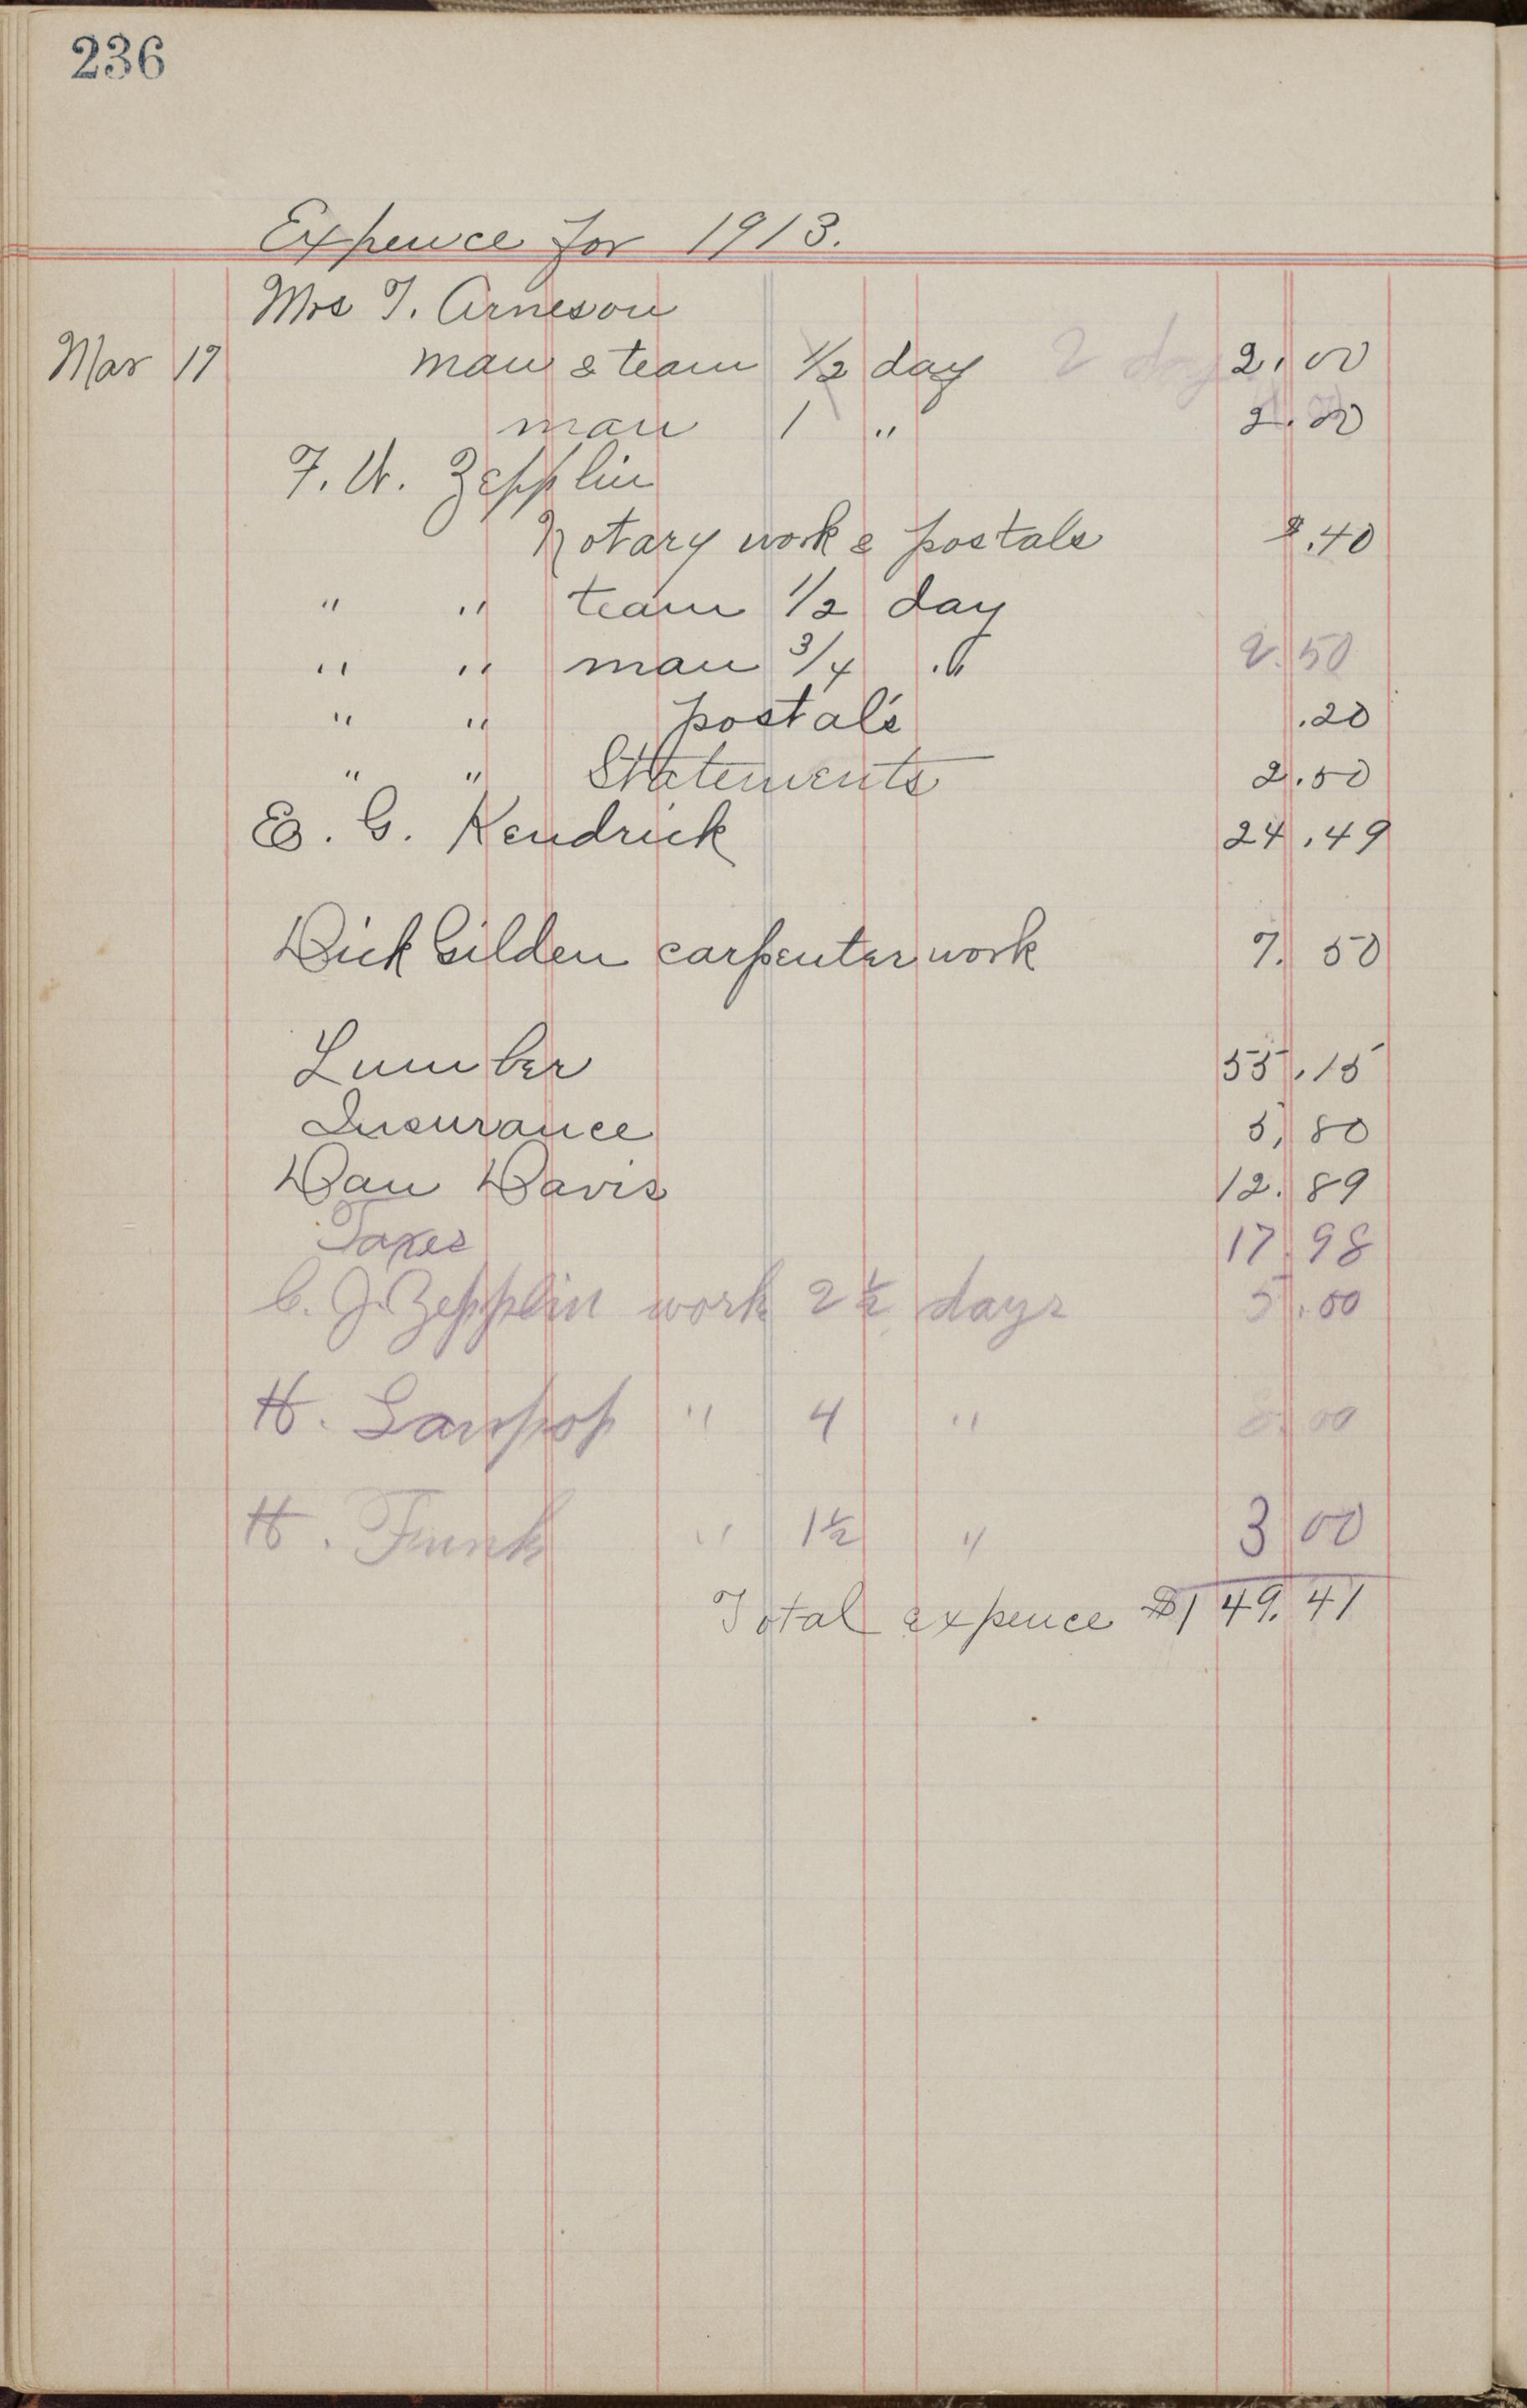 236
Expence for 1913.
Mrs T. Arneson
Mar 17 man & team 1/2 day 2 day 2.00
man 1 " 2.00
F. W. Zepplin
Notary work & postals $.40
" " team 1/2 day
" " man 3/4 " 2.50
" " postals .20
" " Statements 2.50
E. G. Kendrick 24.49
Dick Gilden carpenter work 7.50
Lumber 55.15
Insurance 5,80
Dan Davis 12.89
Taxes 17.98
C. J. Zepplin work 2 1/2 days 5.00
H. " 4 " .00
H. Funk " 1 1/2 " 3 00
Total expence $149.41